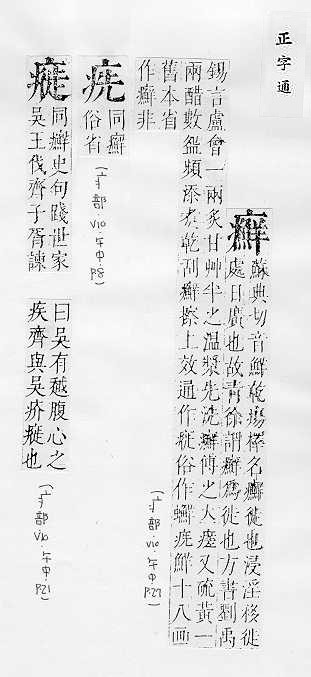 正字通
癬
蘇典切音鮮乾瘍釋名癬徙也浸淫移徙
處日廣也故青徐謂癬爲徙也方書劉禹
錫言盧會一兩炙甘艸半之溫漿先洗癬傅之大瘥又硫黃一
兩醋數盌頻添煮乾刮癬擦上效通作㿅俗作疶鮮十八画
舊本省
作癬非
(疒部.V10.午中.P27)
疶
同癬
俗省
(疒部.V10.午中.P8)
㿅
同癬史句踐世家
吳王伐齊子胥諫
曰吳有越腹心之
疾齊與吳疥㿅也
(疒部.V10.午中.P21)